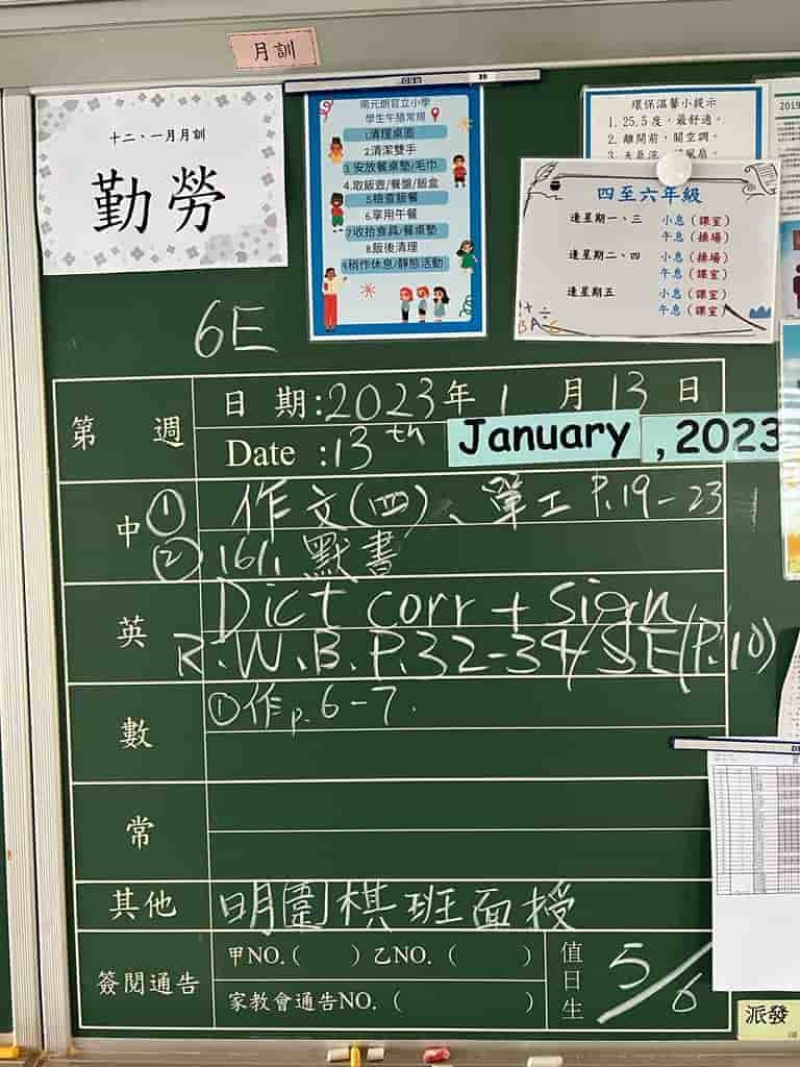 月訓
十二、一月月訓
勤勞
南元朗官立小學
學生午膳常規
1.清理桌面
2.清潔雙手
3.安放餐桌墊/毛巾
4.取飯壺/餐盤/飯盒
5.檢查飯餐
6.享用午餐
7.收拾食具/餐桌墊
8.飯後清理
9.稍作休息/靜態活動
環保溫馨小提示
1. 25.5度，最舒適。
2. 離開前，關空調。
2019
四至六年級
逢星期一、三 小息（課室）
午息（操場）
逢星期二、四 小息（操場）
午息（課室）
逢星期五 小息（課室）
午息（課室）
6E
第 週
日 期:2023年 1 月 13 日
Date :13th January , 2023
中 ① 作文(四)、單工 P.19-23
② 16/1 默書
英 Dict corr + sign
R.W.B.P.32-34/GE(P.10)
數 ①作p.6-7.
常
其他 明圍棋班面授
簽閱通告 甲NO.( ) 乙NO. ( )
家教會通告NO. ( )
值日生 5/6
派發